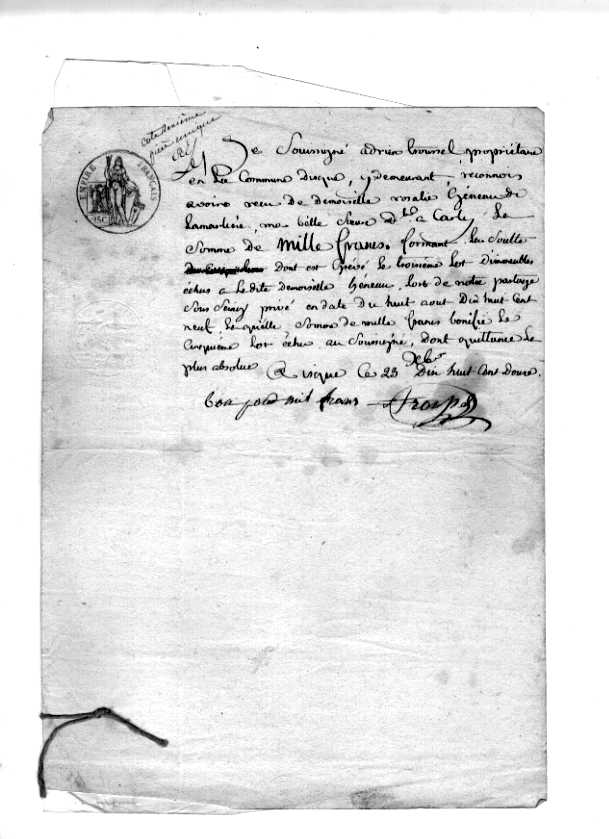 cote deuxième
pièce unique
EMPIRE FRANÇAIS
75 C
Je Soussigné adrien trousel propriétaire
en la Commune Disque, y demeurant, reconnois
avoire reçu de demoiselle rosalie héneau de
Lamarlière, ma belle Sœure dte a Carly, La
Somme de Mille francs. formant la Soulte
dont est Grévé le troisième Lot Dimmeubles
échus a Ledite demoiselle héneau, Lors de notre partage
Sous Seing privé en date Du huit aout Dix huit Cent
neuf, Laquelle Somme de mille francs bonifie Le
Cinquième Lot échu au Soussigné, Dont quittance La
plus absolue
a isque Ce 23 Xbre Dix huit Cent Douze.
bon pour mil frans